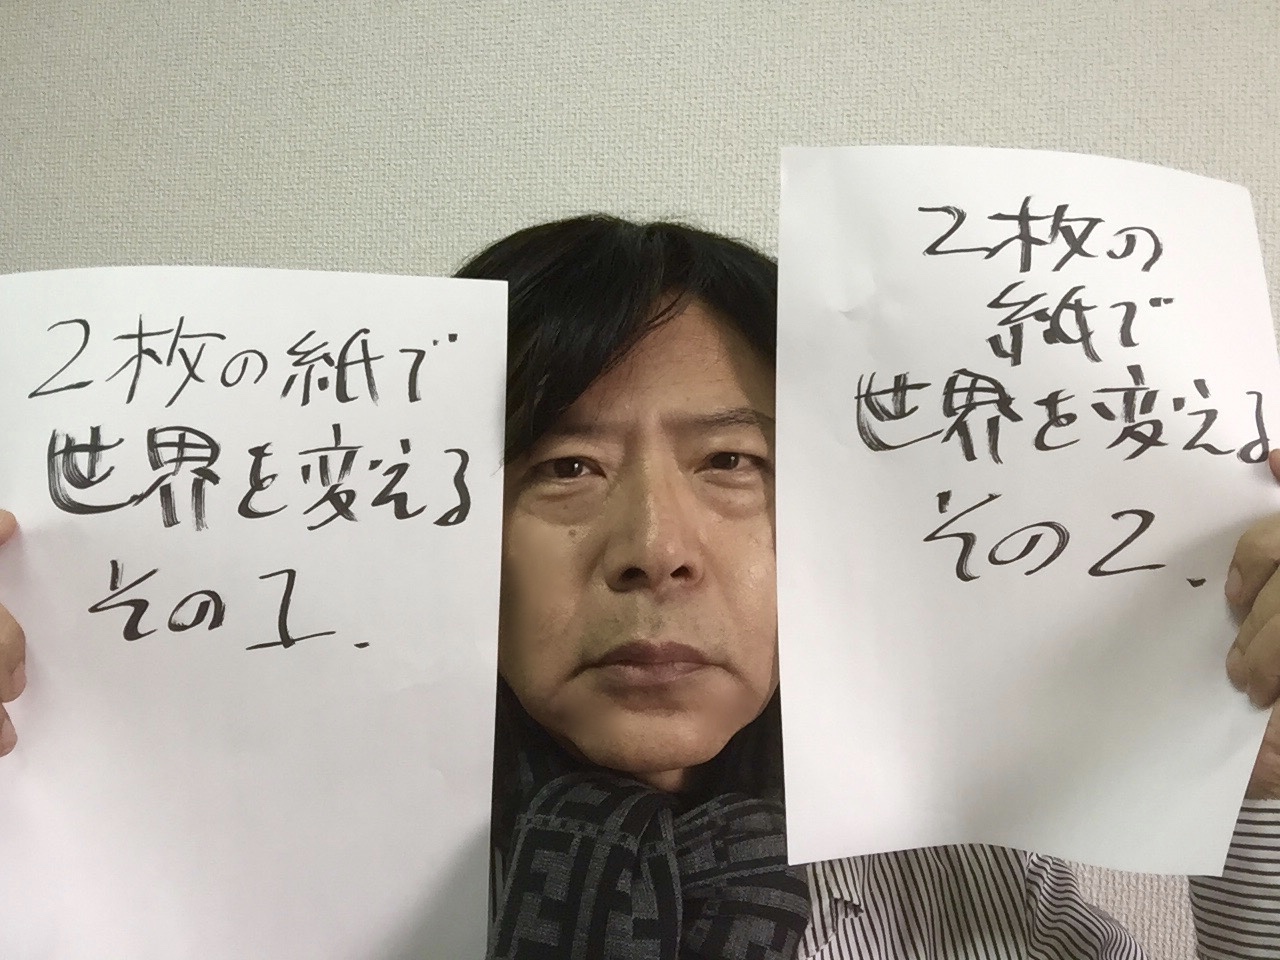 2枚の紙で
世界を変える
その1.
2枚の
紙で
世界を変える
その2.